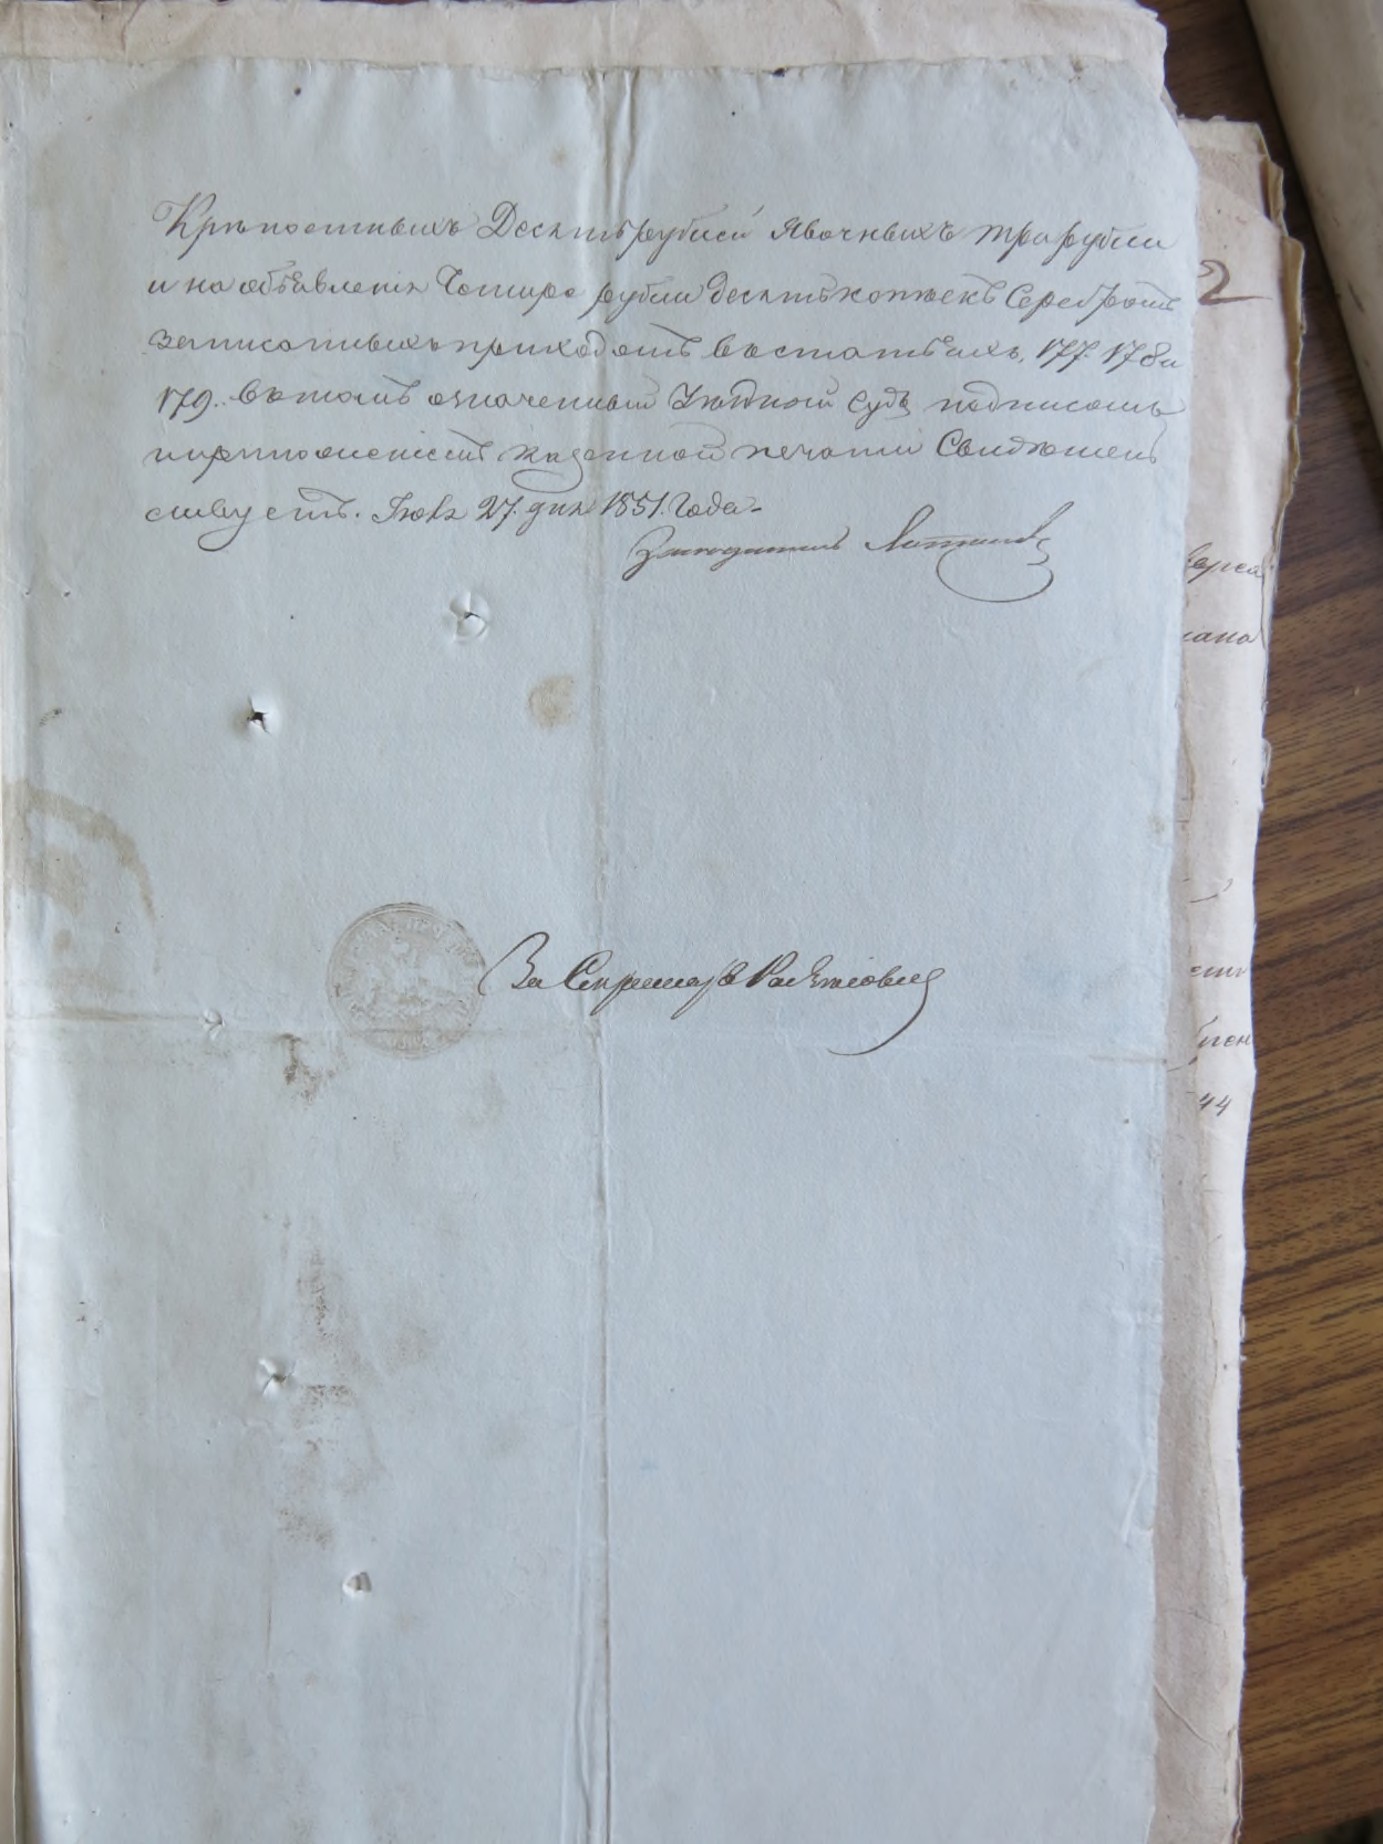 Крѣпостныхъ Десять рублей Явочныхъ три рубли
и на объявленія Чотыре рубли десять копѣекъ Серебромъ
записанныхъ приходомъ въ статьяхъ, 177. 178 и
179. въ томъ означенный Уѣздной Судъ подписомъ
и приложеніемъ казенной печати Свидѣтель
ствуетъ. Іюня 27. дня 1851. Года
Засѣдатель
За Секретаря
2
44